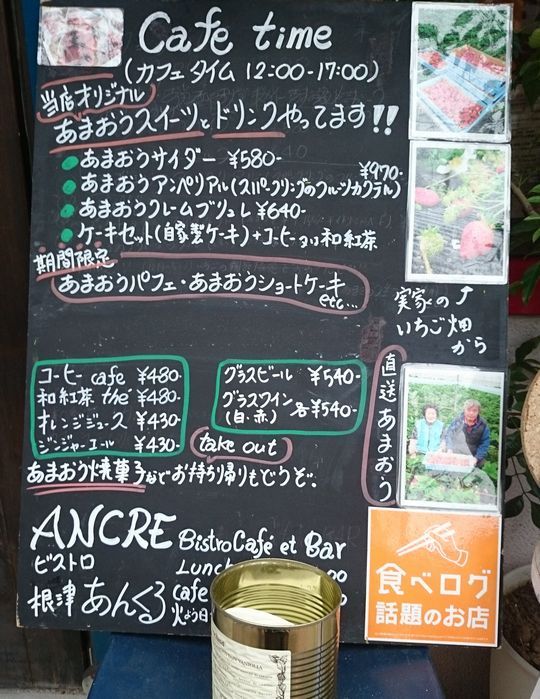 Cafe time
(カフェタイム 12:00-17:00)
当店オリジナル
あまおうスイーツとドリンクやってます!!
あまおうサイダー ¥580-
¥970-
あまおうアンペリアル(スパークリングのフルーツカクテル)
あまおうクレームブリュレ ¥640-
ケーキセット(自家製ケーキ)+コーヒーor和紅茶
期間限定
あまおうパフェ・あまおうショートケーキ
etc...
実家の
いちご畑
から
直送あまおう
コーヒー cafe ¥480-
和紅茶 thé ¥480-
オレンジジュース ¥430-
ジンジャーエール ¥430-
グラスビール ¥540-
グラスワイン
(白・赤) 各¥540-
take out
あまおう焼菓子などお持ち帰りもどうぞ。
ANCRE Bistro Café et Bar
ビストロ
根津 あんくる
Lunch
cafe
火よう日
食べログ
話題のお店